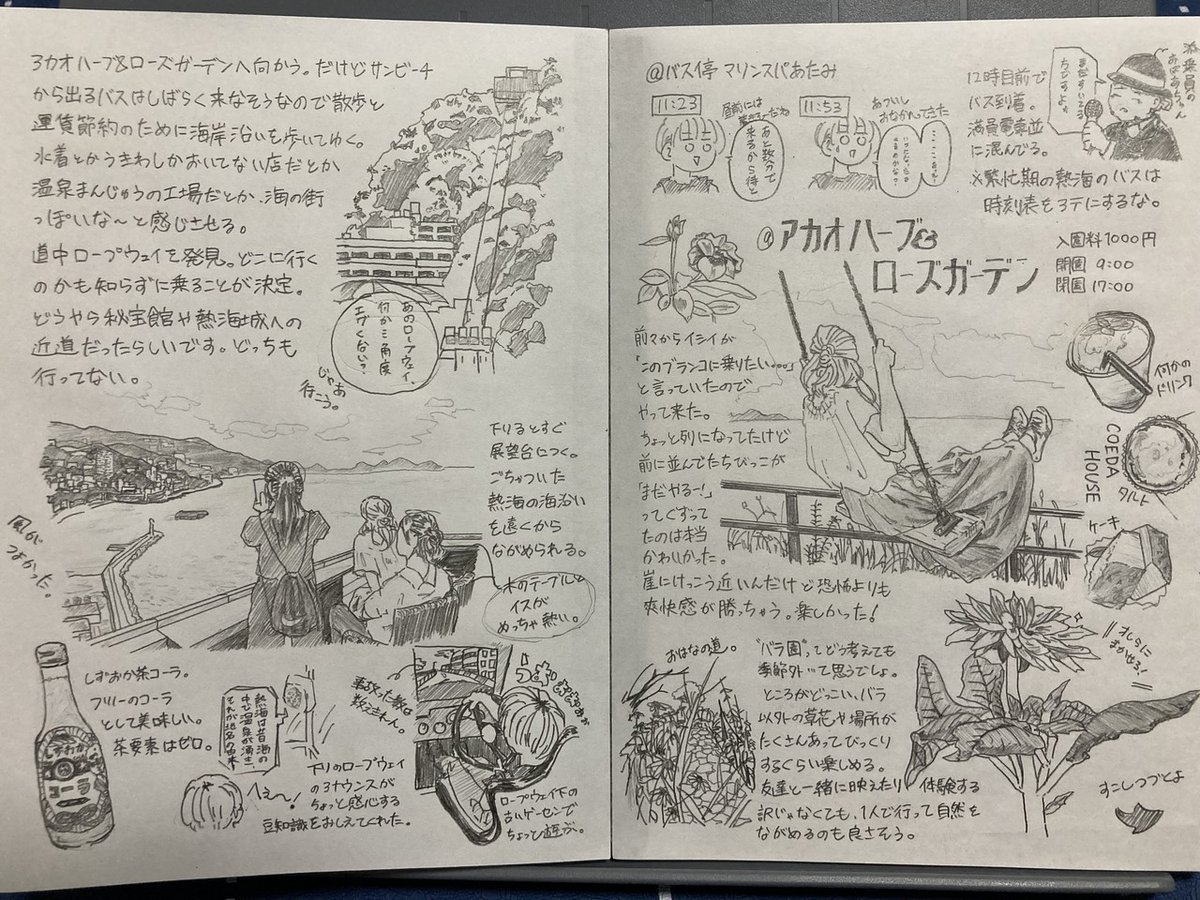 アカオハーブ&ローズガーデンへ向かう。だけどサンビーチ
から出るバスはしばらく来なそうなので散歩と
運賃節約のために海岸沿いを歩いてゆく。
水着とかうきわしかおいてない店だとか、
温泉まんじゅうの工場だとか、海の街
っぽいな〜と感じさせる。
道中ロープウェイを発見。どこに行く
のかも知らずに乗ることが決定。
どうやら秘宝館や熱海城への
近道だったらしいです。どっちも
行ってない。
あのロープウェイ、
何か三角度
エグくない?
じゃあ
行こう。
下りるとすぐ
展望台につく。
ごちゃついた
熱海の海沿い
を遠くから
ながめられる。
木のテーブルと
イスが
めっちゃ熱い。
風が
つよかった。
しずおか茶コーラ。
フツーのコーラ
として美味しい。
茶要素はゼロ。
しずおか
コーラ
熱海は昔海の
中で温泉が湧き、
それが地名の由来
へぇ〜!
下りのロープウェイ
のアナウンスが
ちょっと感心する
豆知識をおしえてくれた。
事故った数は
数えきれん。
ロープウェイ下の
古いゲーセンで
ちょっと遊ぶ。
@バス停 マリンスパあたみ
11:23
昼前には
着けるだね
あと数分で
来るから待と
11:53
あついし
おなかへってきた
12時目前で
バス到着。
満員電車並
に混んでる。
添乗員の
おばあちゃん
※繁忙期の熱海のバスは
時刻表をアテにするな。
@アカオハーブ&
ローズガーデン
入園料1000円
開園 9:00
閉園 17:00
前々からイシイが
「このブランコに乗りたい...」
と言っていたので
やって来た。
ちょっと列になってたけど
前に並んでたちびっこが
「まだやるー!」
ってぐずって
たのは本当
かわいかった。
崖にけっこう近いんだけど恐怖よりも
爽快感が勝っちゃう。楽しかった!
何かの
ドリンク
COEDA
HOUSE
タルト
ケーキ
おはなの道。
"バラ園"ってどう考えても
季節外って思うでしょ。
ところがどっこい、バラ
以外の草花や場所が
たくさんあってびっくり
するくらい楽しめる。
友達と一緒に映えたり体験する
訳じゃなくても、1人で行って自然を
ながめるのも良さそう。
オレらに
まかせろ!
すこしつづとよ